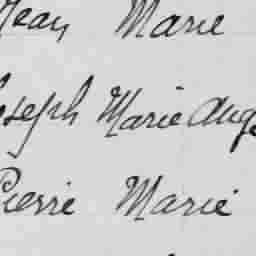 Jean Marie
Joseph Marie Aug
Pierre Marie